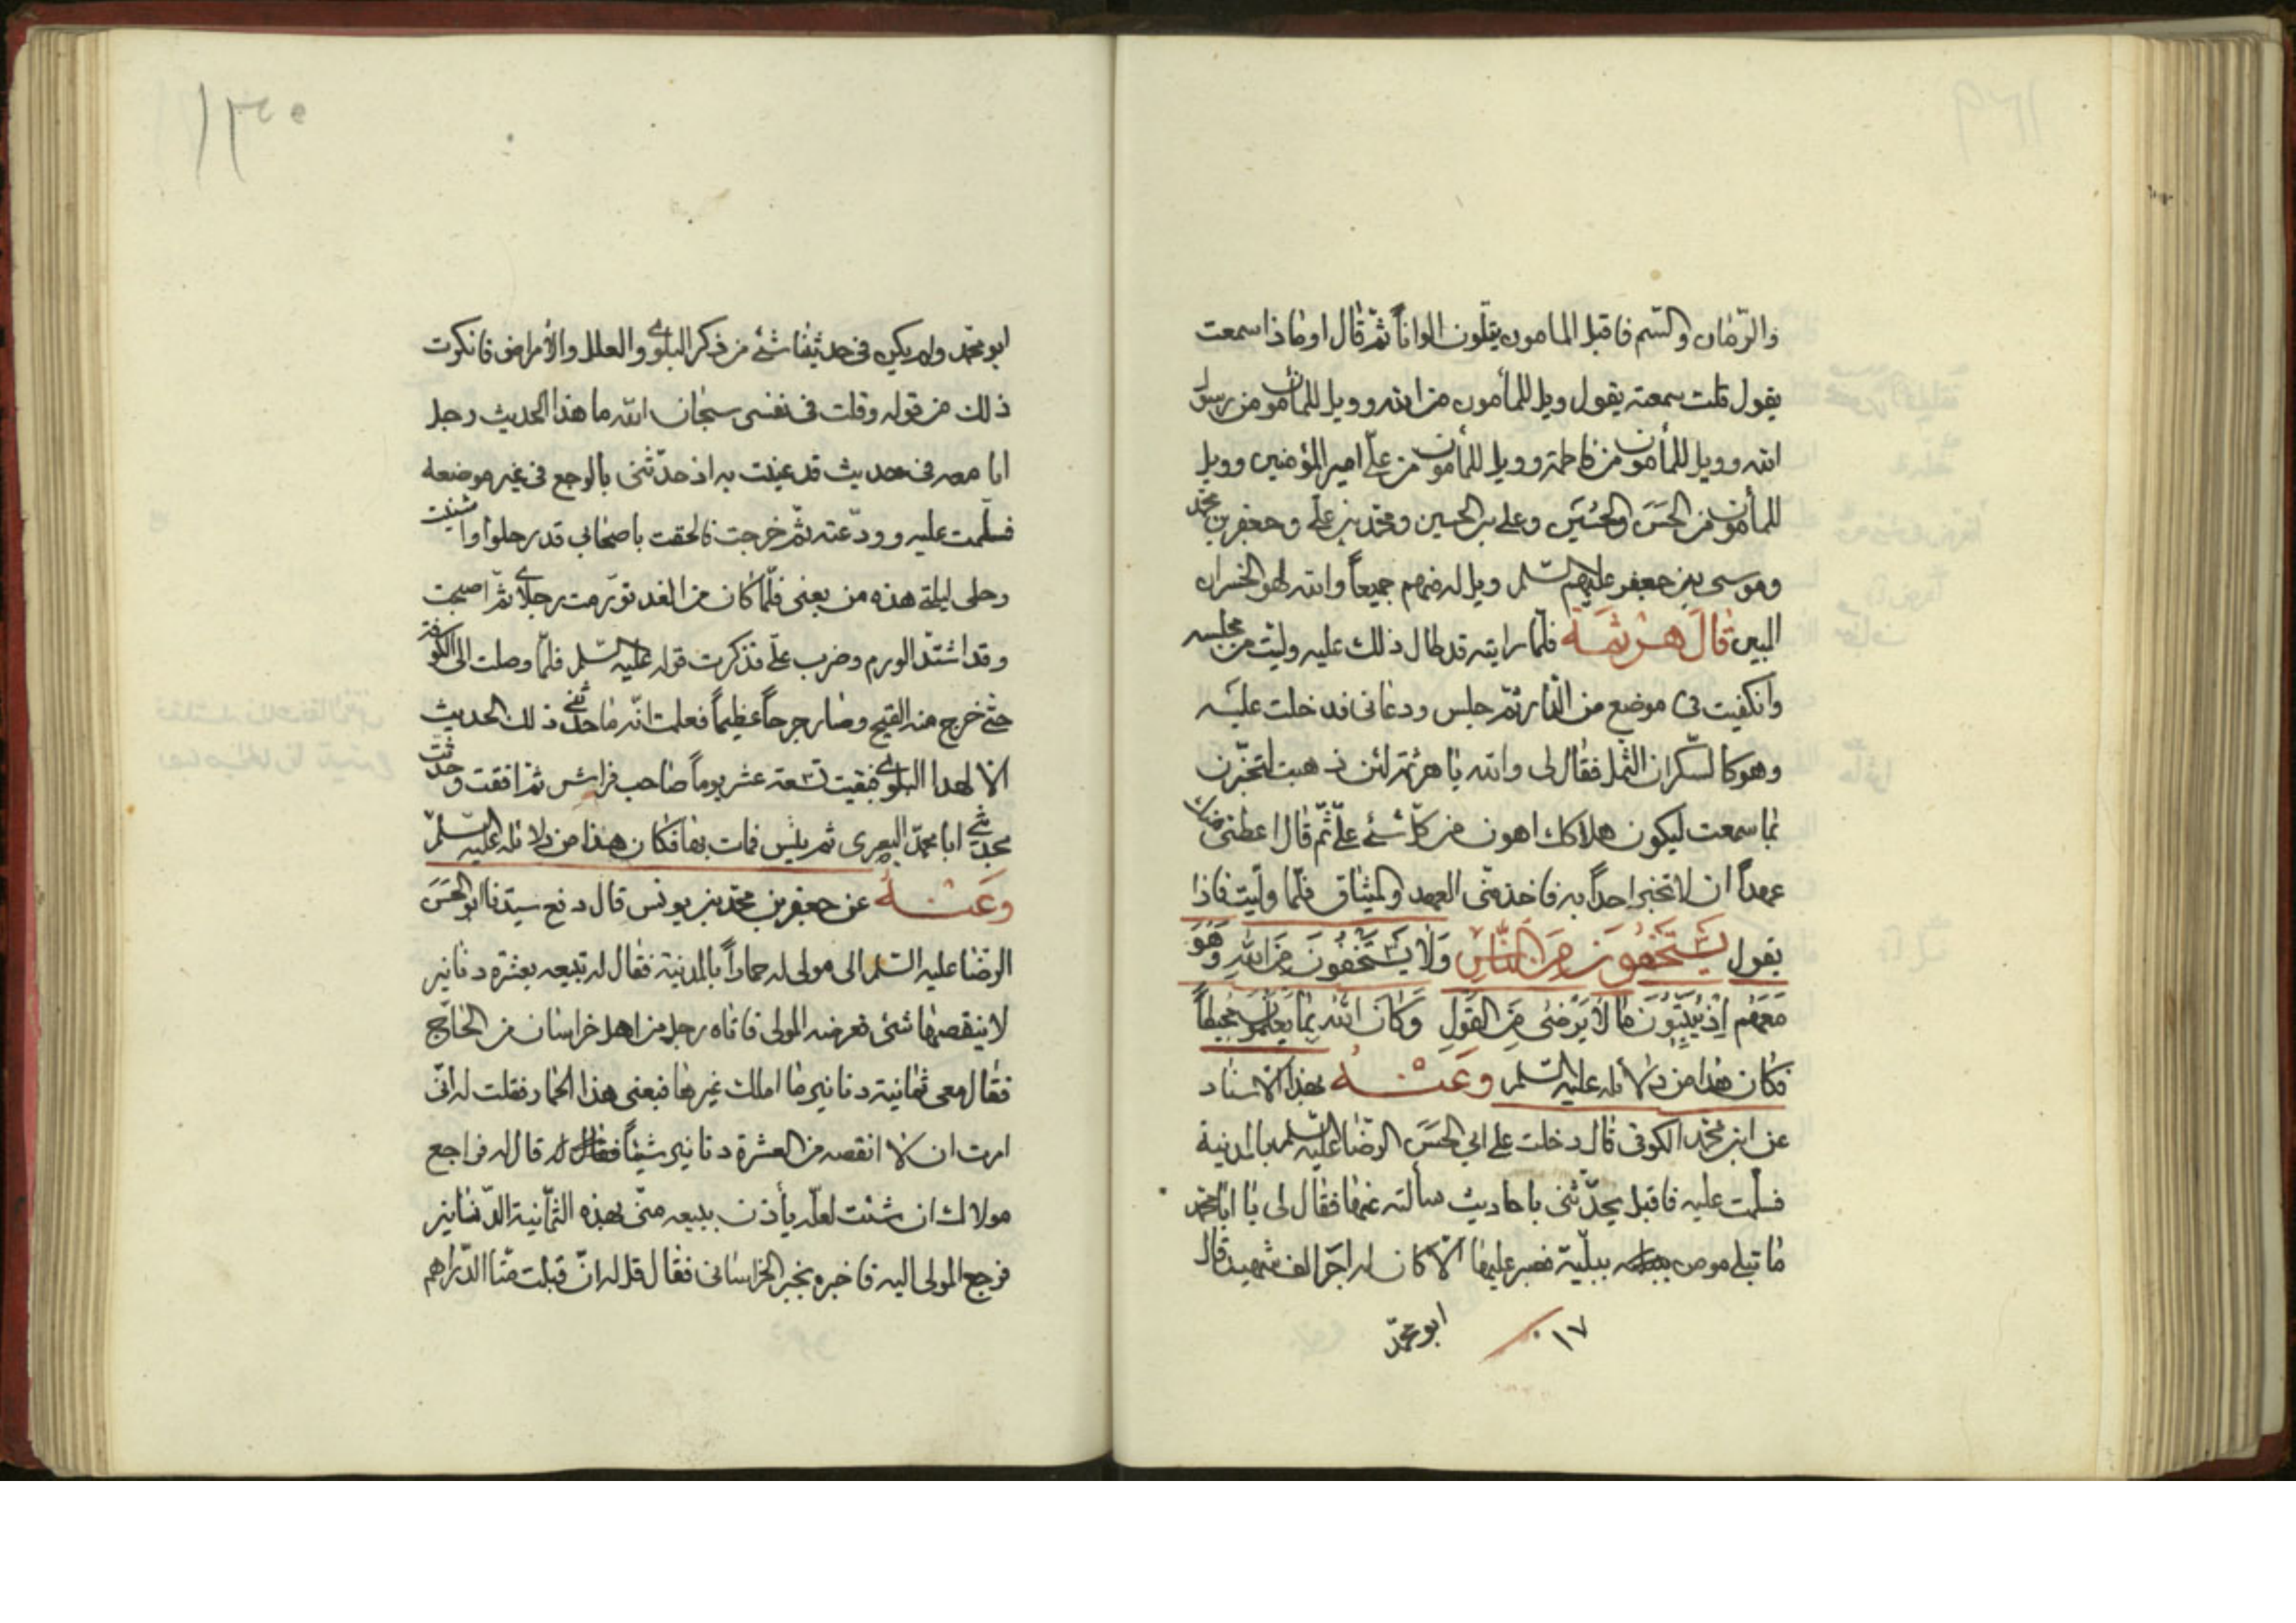 والرّمان والسّم فاقبل المامون يتلون الواناً ثمّ قال او ماذا سمعت
يقول قلت سمعته يقول ويل للمأمون من الله وويل للمأمون من رسول
الله وويل للمأمون من فاطمة وويل للمأمون من علىّ امير المؤمنين وويل
للمأمون من الحَسَن والحُسَين وعلى بن الحسين ومحمّد بن علىّ وجعفر بن محمّد
وموسى بن جعفر عليهم السّلم ويل له منهم جميعاً والله لهو الخسران
المبين قَالَ هرثمَة فلمّا رايته قد طال ذلك عليه وليّت من مجلسه
وانكفيت فى موضع من الدّار ثمّ جلس ودعانى فدخلت عليه
وهو كالسّكران الثمل فقال لى والله يا هرثمة لئن ذهبت لتخبّرن
بما سمعت ليكون هلاكك اهون من كلّ شئ علىّ ثمّ قال اعطنى ميثاقا
عهداً ان لا تخبر احداً به فاخذ منّى العهد والميثاق فلمّا ولّيت فاذا
يقول يَسْتَخْفُونَ مِنَ النَّاسِ وَلَا يَسْتَخْفُونَ مِنَ اللهِ وَهُوَ
مَعَهُم إِذْ يُبَيِّتُونَ مَا لَا يَرْضىٰ مِنَ القَولِ وَكَانَ اللهُ بِمَا يَعْمَلُونَ مُحِيطاً
فكان هذا من دلائله عليه السّلم وعَنْهُ بهذا الاسناد
عن ابن محمّد الكوفى قال دخلت على ابى الحَسَن الرّضا عليه السّلم بالمدينة
فسلّمت عليه فاقبل يحدّثنى باحاديث سألته عنها فقال لى يا ابا محمّد
ما ابتلى مومن ببليّة فصبر عليها الّا كان له اجر الف شهيد قال
١٧ ابو محمّد
ابو محمّد ولم يكن فى حديثنا شئ من ذكر البلوى والعلل والأمراض فانكرت
ذلك من قوله وقلت فى نفسى سبحان الله ما هذا الحديث رجل
انا معه فى حديث قد عنيت به اذ حدّثنى بالوجع فى غير موضعه
فسلّمت عليه وودّعته ثمّ خرجت فالحقت باصحابى قد رحلوا واشتكت
رجلى ليلتى هذه من بعض فلمّا كان من الغد تورّمت رجلاى ثمّ اصبحت
وقد اشتدّ الورم وضرب علىّ فذكرت قوله عليه السّلم فلمّا وصلت الى الكوفة
حتّى خرج منه القيح وصار جرحاً عظيماً فعلمت انّه ما حدّثنى ذلك الحديث
الّا لهذا البلوى فبقيت تسعة عشر يوماً صاحب فراش ثمّ افقت وحدّثت
ابا محمّد البصرى ثم فمات بها فكان هذا من دلائله عليه السّلم
وعَنْهُ عن جعفر بن محمّد بن يونس قال دفع سيّدنا ابو الحَسَن
الرّضا عليه السّلم الى مولى له حماراً بالمدينة فقال له تبيعه بعشرة دنانير
لا ينقصها شئ فعرضه المولى فاتاه رجل من اهل خراسان من الحاجّ
فقال معى ثمانية دنانير ما املك غيرها فبعنى هذا الحمار فقلت له انّى
امرت ان لا انقصه من العشرة دنانير شيئاً فقال له قال له فراجع
مولاك ان شئت لعلّه يأذن ببيعه منّى بهذه الثّمانية الدّنانير
فرجع المولى اليه فاخبره بخبر الخراسانى فقال قل له ان قبلت منّا الدّراهم